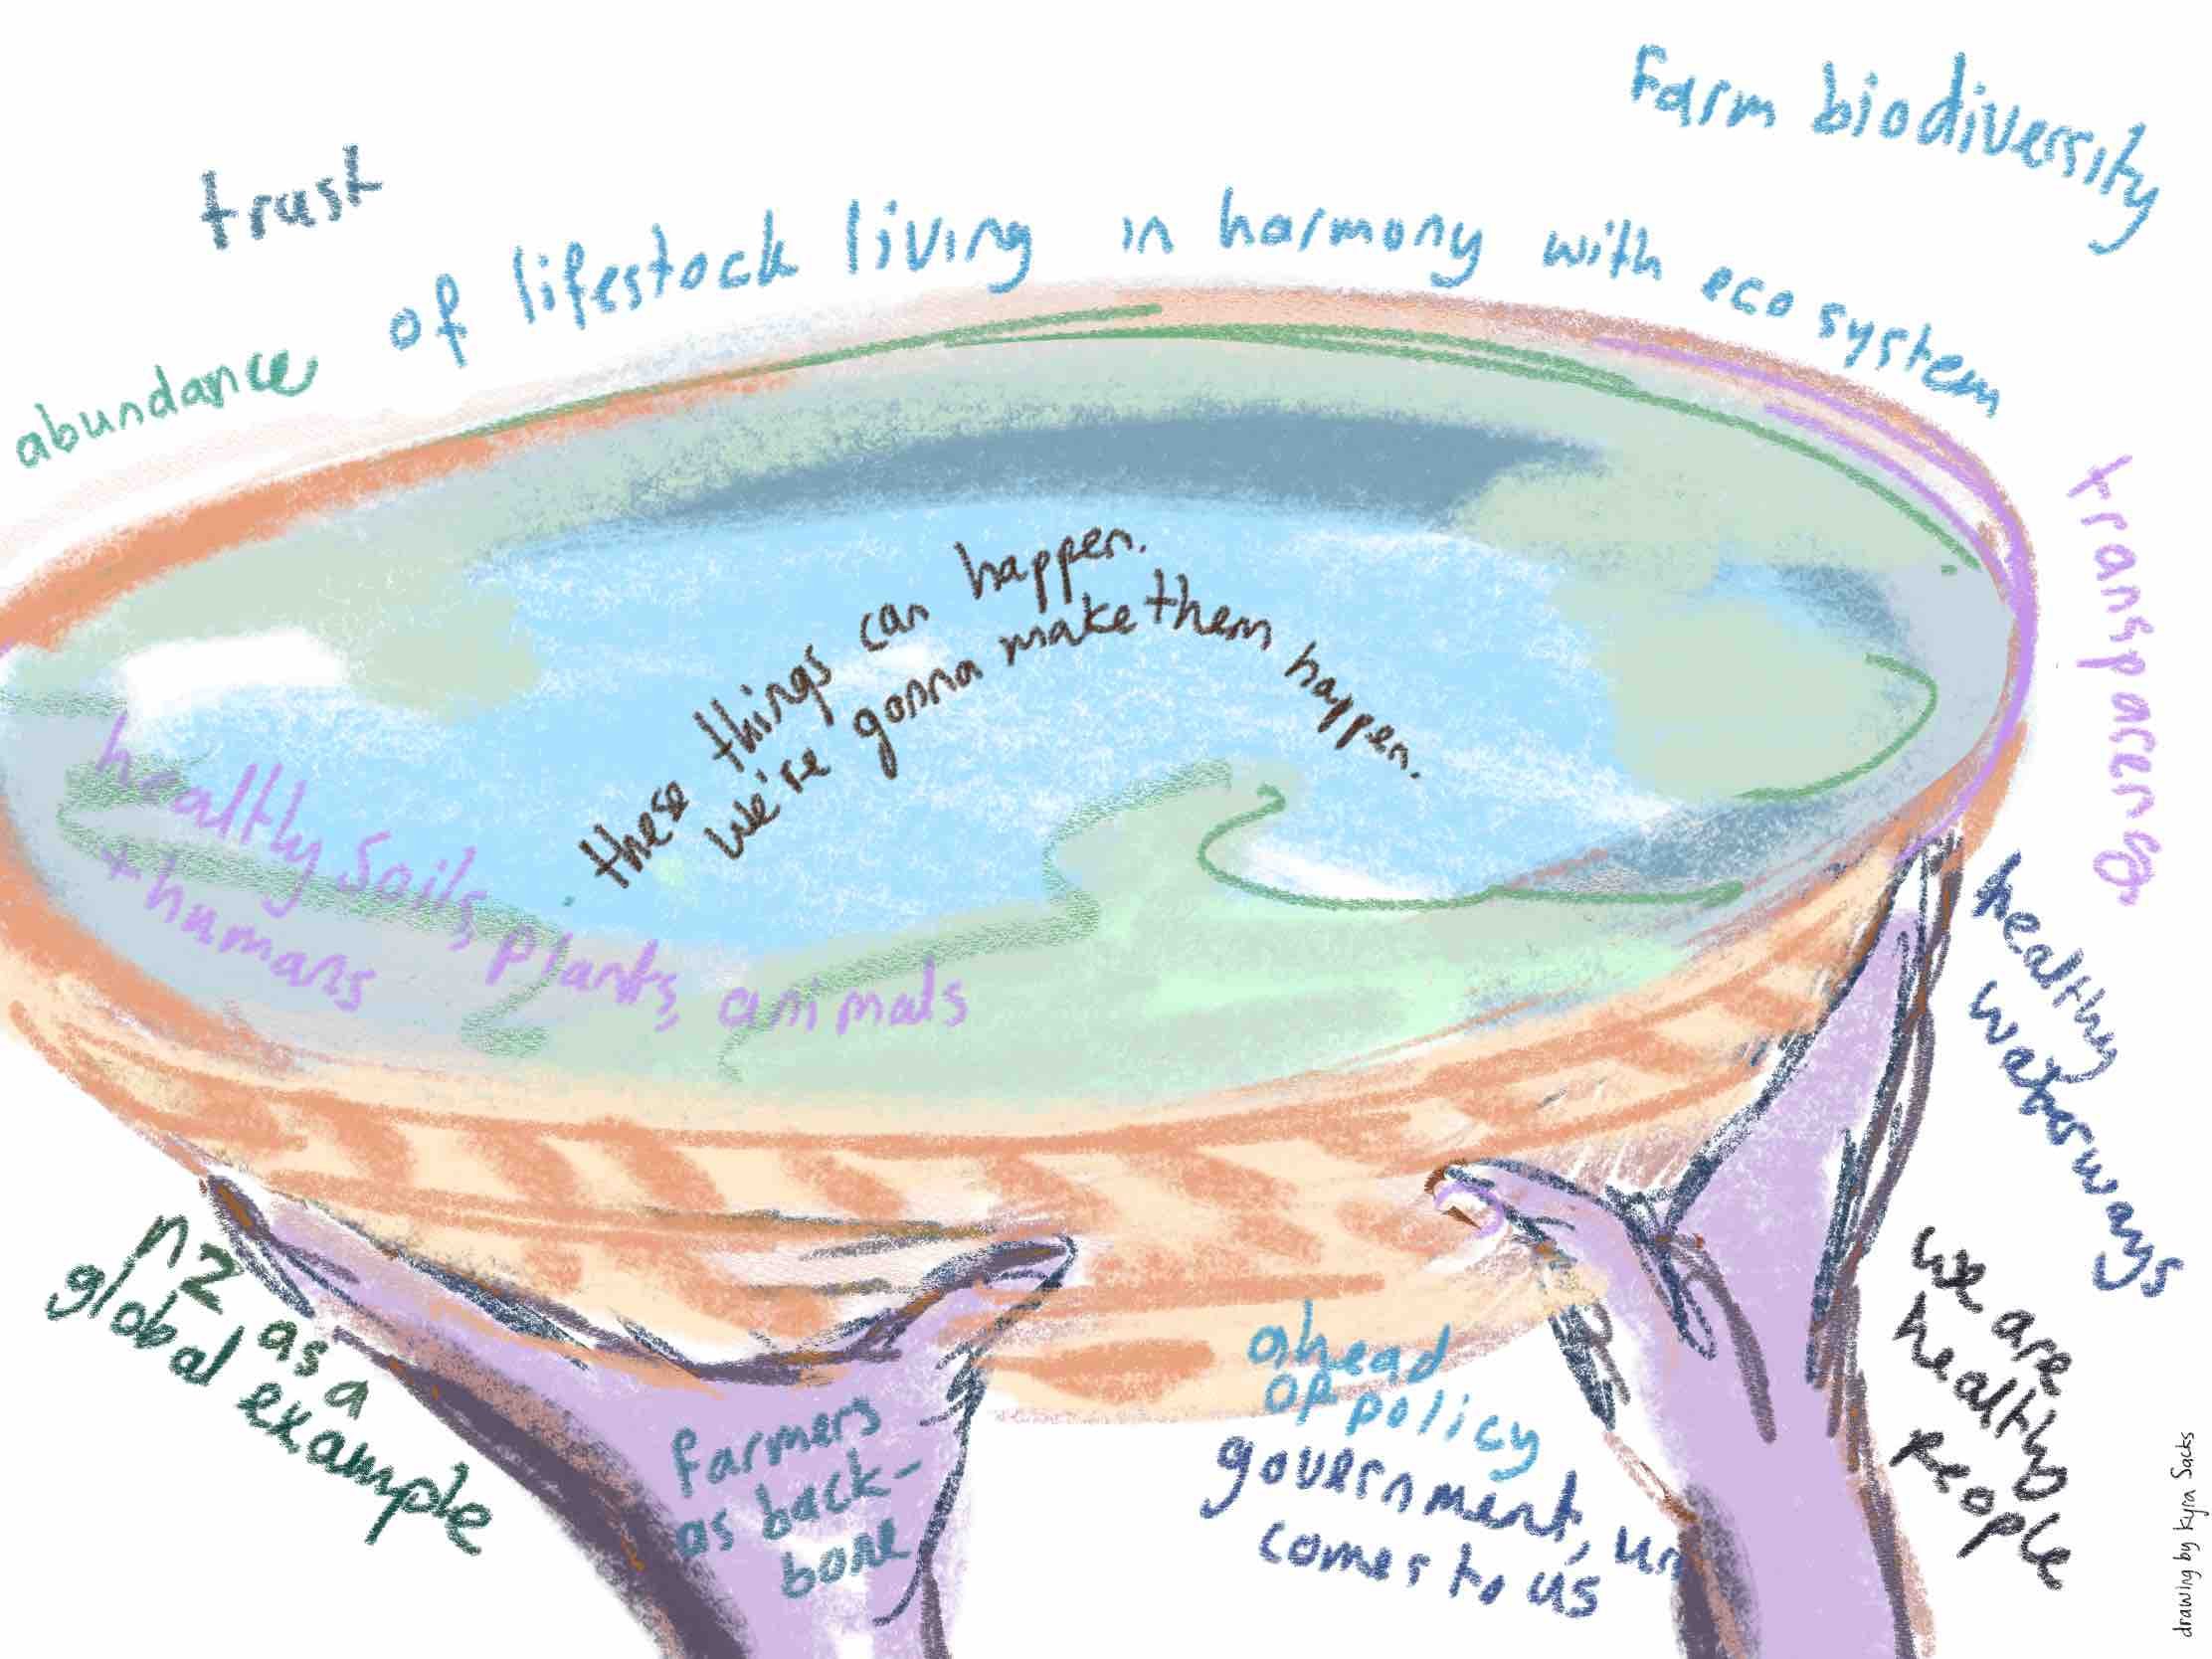 Farm biodiversity
trust
abundance of lifestock living in harmony with eco system
transparency
these things can happen.
we're gonna make them happen.
healthy soils, plants, animals
+ humans
healthy
waterways
nz as a
global example
we are
healthy
people
farmers
as back-
bone
ahead
of policy
government, un
comes to us
drawing by kyra Sacks